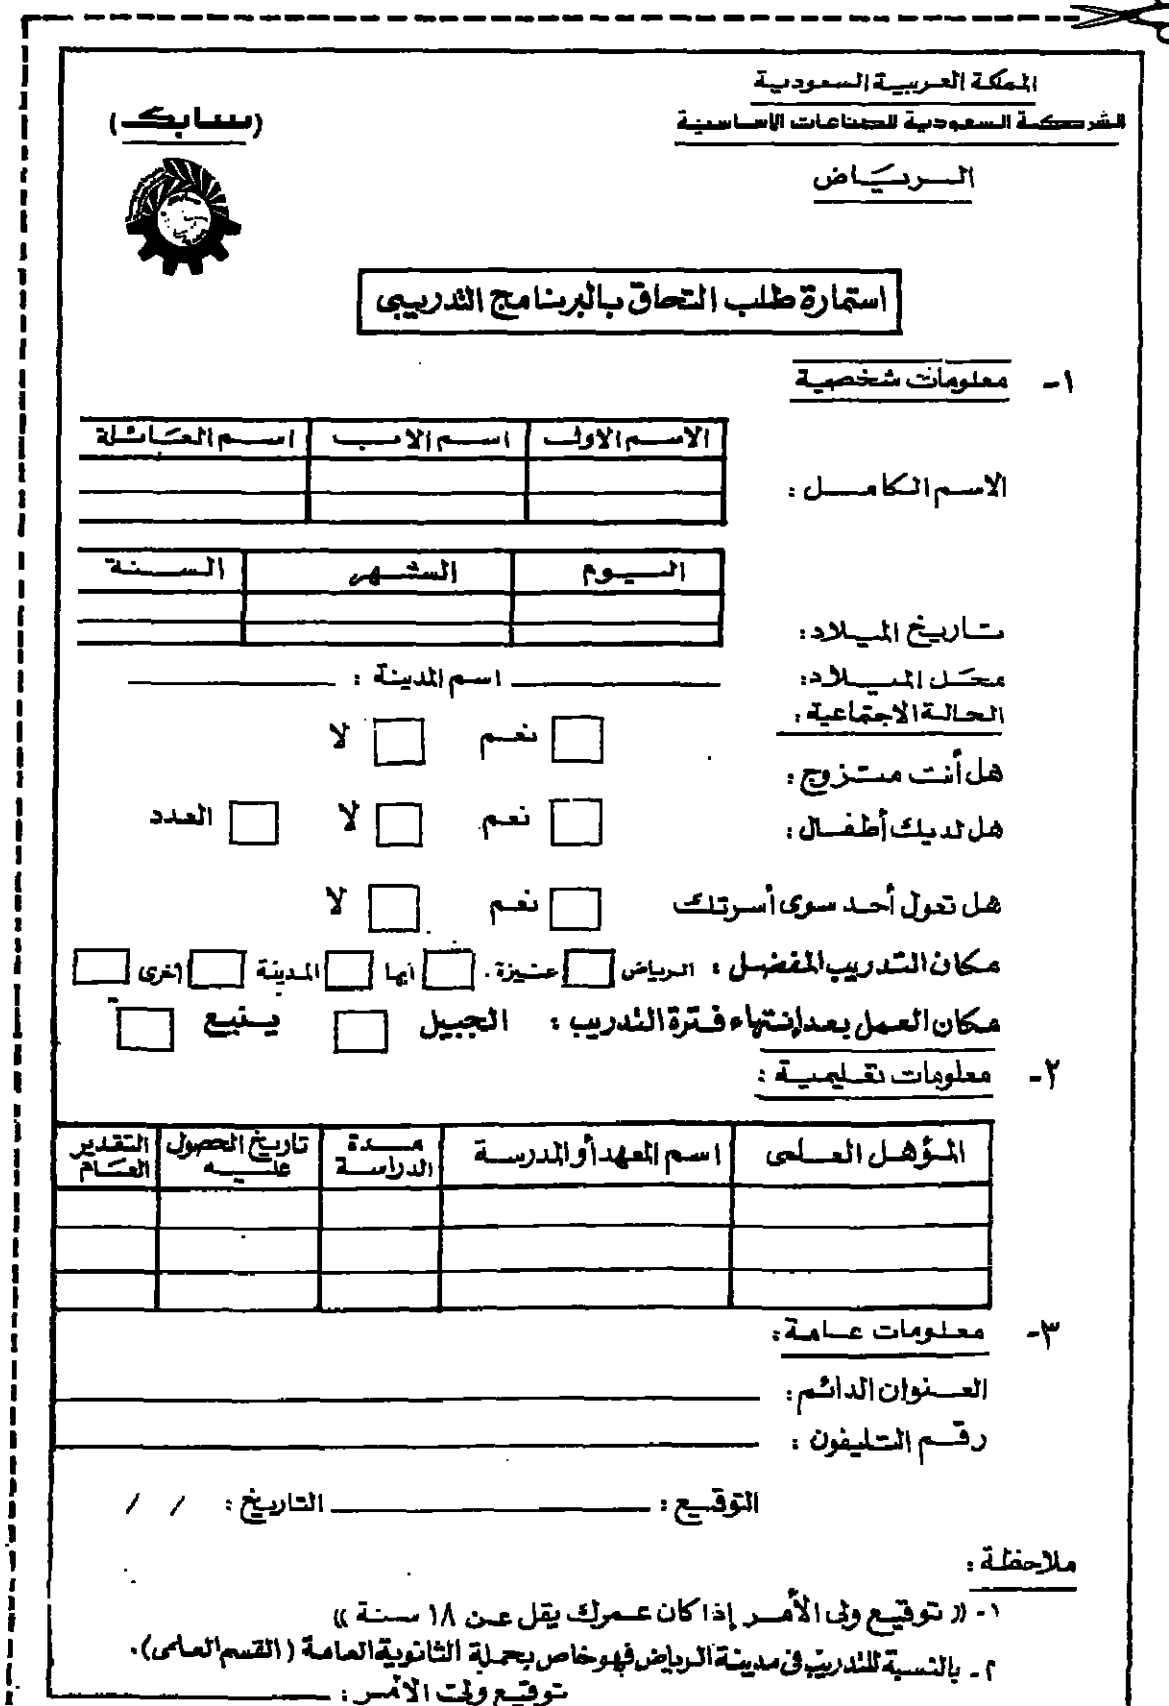 المملكة العربية السعودية
الشركة السعودية للصناعات الاساسية
(سابك)
الرياض
استمارة طلب التحاق بالبرنامج التدريبي
١- معلومات شخصية
الاسم الاول اسم الاب اسم العائلة
الاسم الكامل :
اليوم الشهر السنة
تاريخ الميلاد :
محل الميلاد : اسم المدينة :
الحالة الاجتماعية :
نعم لا
هل أنت متزوج :
هل لديك أطفال : نعم لا العدد
هل تعول أحد سوى أسرتك نعم لا
مكان التدريب المفضل : الرياض عنيزة . ابها المدينة اخرى
مكان العمل بعد إنتهاء فترة التدريب : الجبيل ينبع
٢- معلومات تعليمية :
المؤهل العلمى اسم المعهد أو المدرسة مدة الدراسة تاريخ الحصول عليه التقدير العام
٣- معلومات عامة :
العنوان الدائم :
رقم التليفون :
التوقيع : التاريخ : / /
ملاحظة :
١- (( توقيع ولى الأمر إذا كان عمرك يقل عن ١٨ سنة ))
٢- بالنسبة للتدريب فى مدينة الرياض فهو خاص بحملة الثانوية العامة ( القسم العلمى ) .
توقيع ولى الأمر :